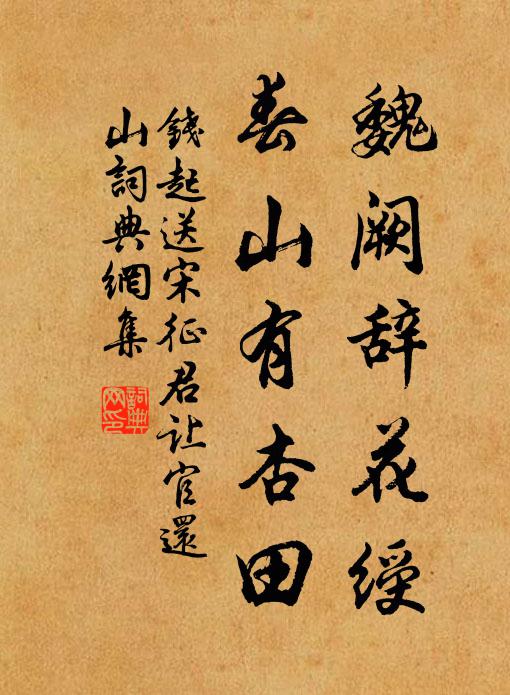 魏阙辞花绶
春山有杏田
錢起送宋征君让官還
山詞典網集
詞典网印